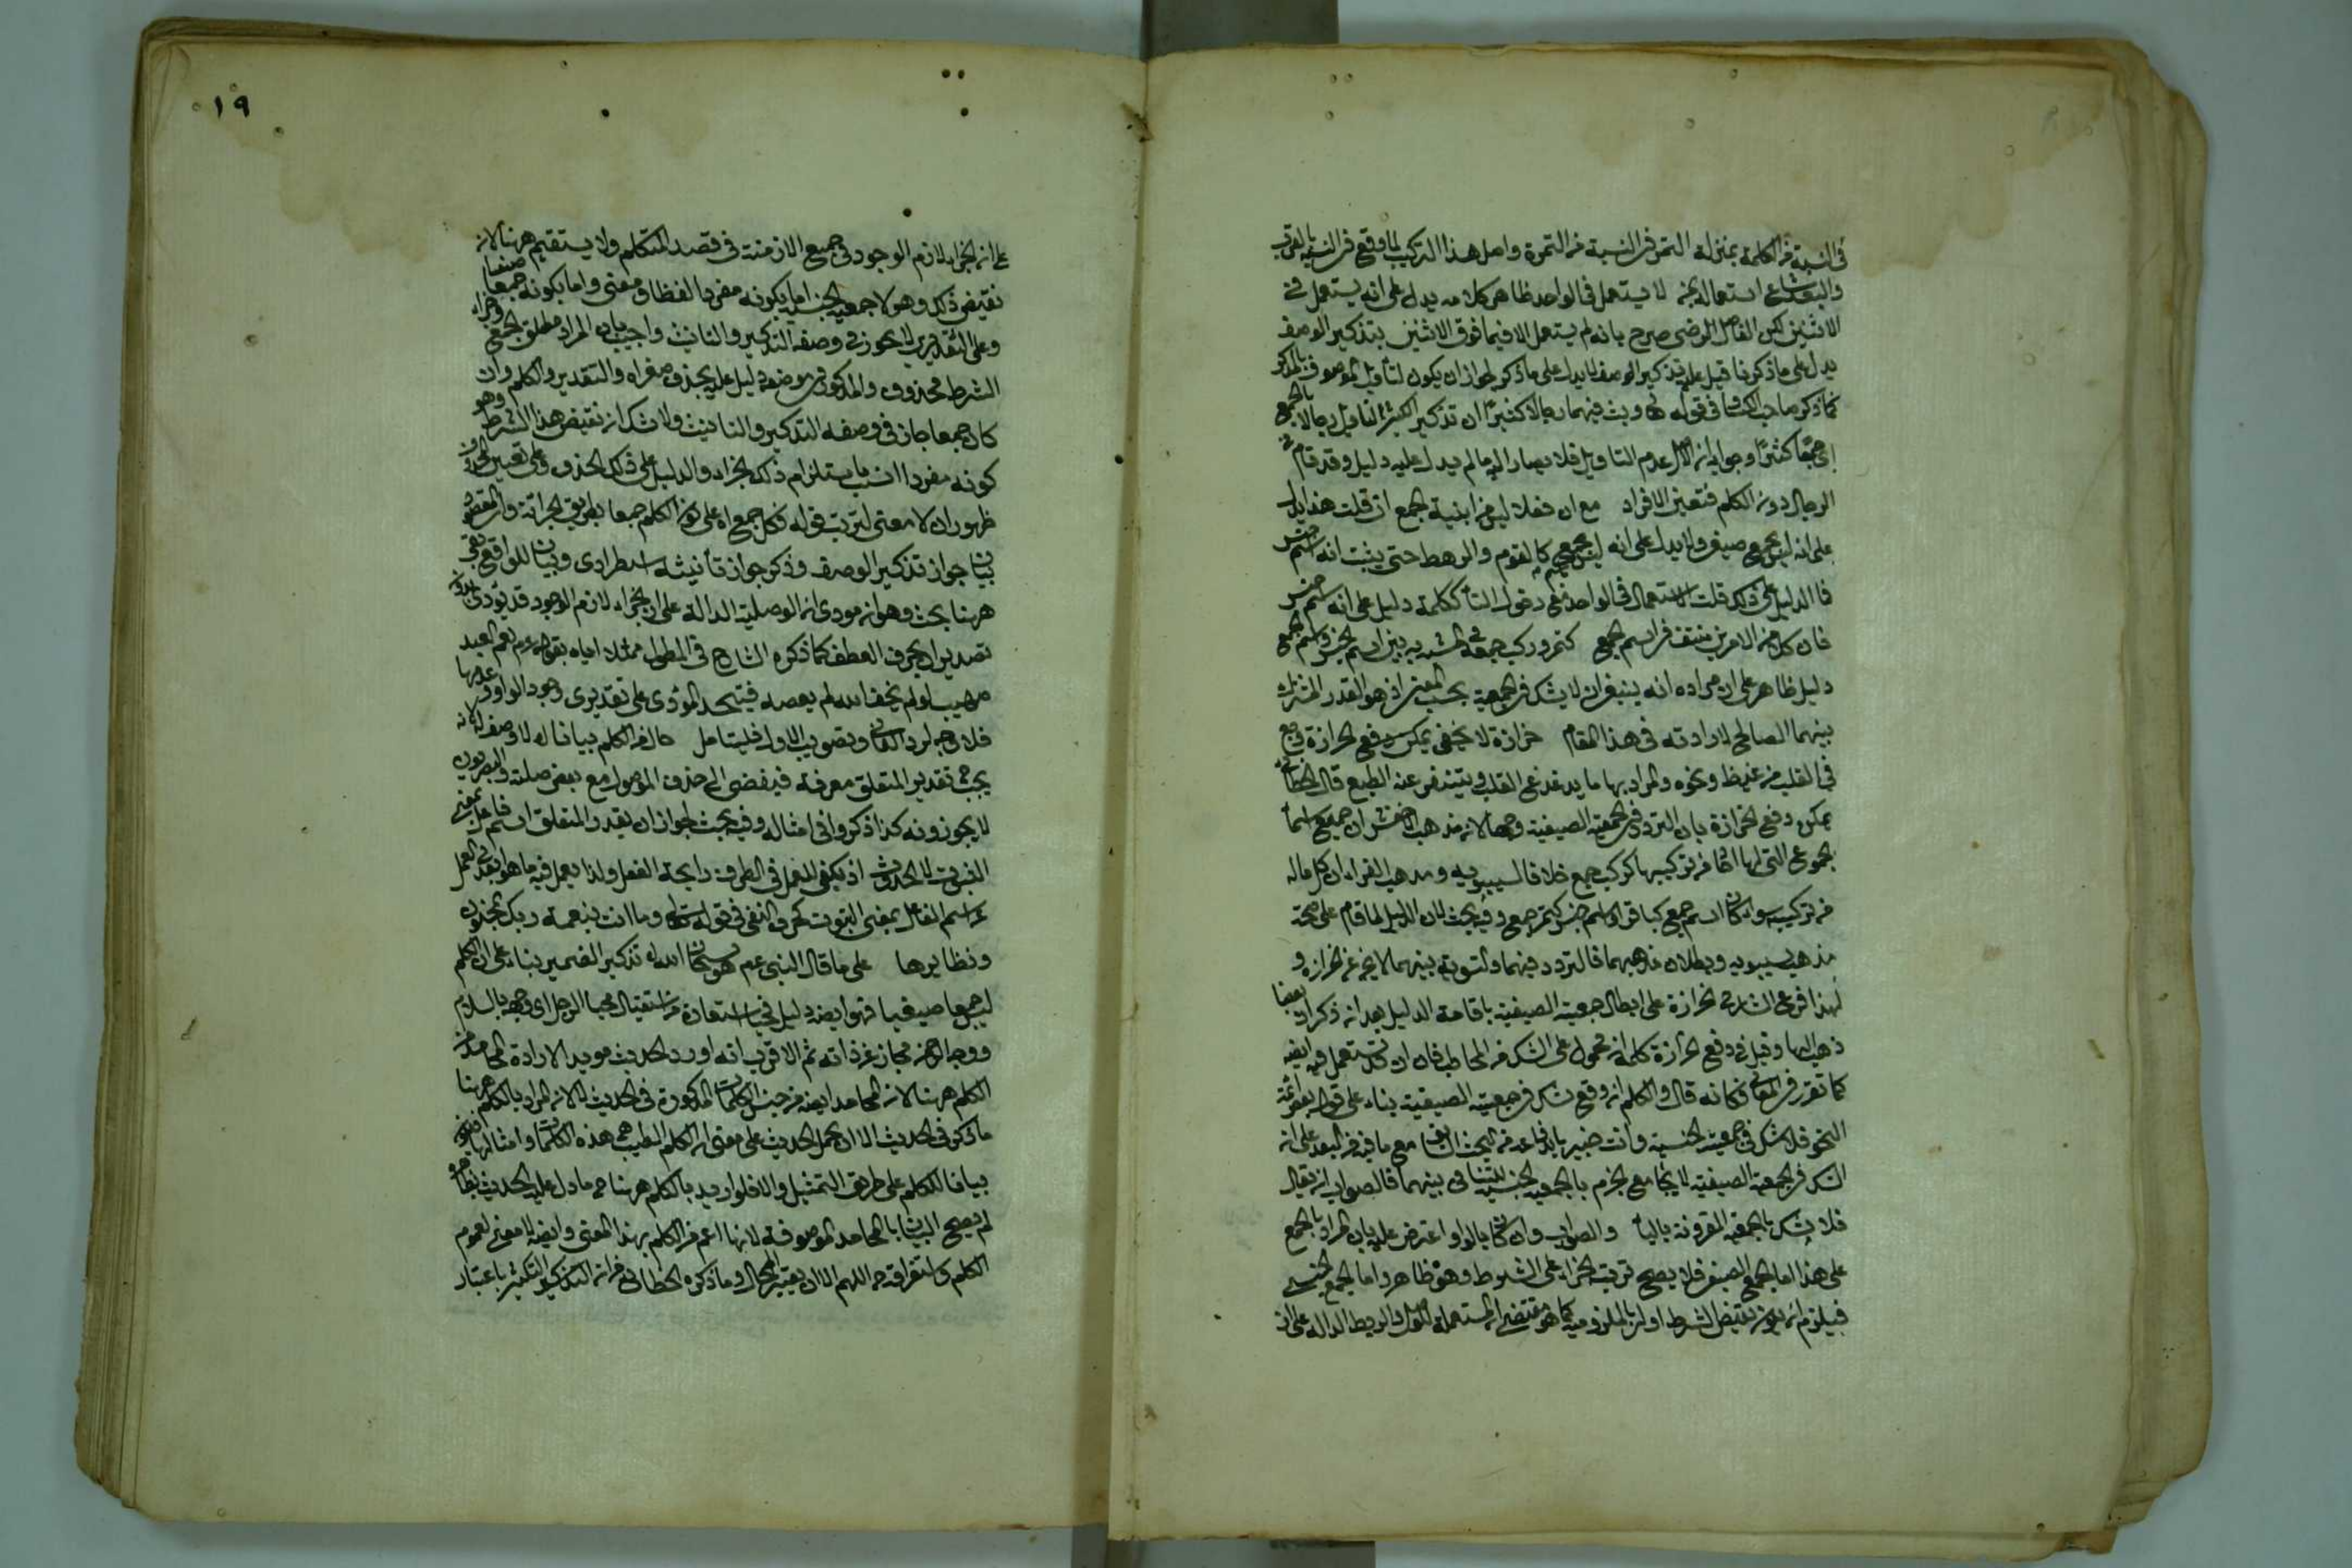 في النسبة من الكلمة بمنزلة التمر في النسبة من التمرة واصل هذا التركيب لما وقع في النسبة بالقرب
والبعد شاع استعماله لا يستعمل في الواحد ظاهر كلامه يدل على انه يستعمل في
الاثنين لكن الفاضل الرضي صرح بانه لم يستعمل الا فيما فوق الاثنين بتذكير الوصف
يدل على ما ذكرنا قيل عليه تذكير الوصف لا يدل على ما ذكر لجواز ان يكون لتأويل الموصوف بالمذكر
كما ذكر صاحب الكشاف في قوله وبث فيهما رجالا كثيرا ان تذكير الكثير لتأويل رجالا بالجمع
اي جمعا كثيرا وجوابه ان الاصل عدم التاويل فلا يصار اليه ما لم يدل عليه دليل وقد قام في
الرجال دون الكلم فتعين الافراد مع ان فعلا ليس من ابنية الجمع ان قلت هذا يدل
على انه ليس بجمع صيغي ولا يدل على انه ليس بجمع كالقوم والرهط حتى يثبت انه اسم جنس
فما الدليل على ذلك قلت الاستعمال في الواحد دخول التاء ككلمة دليل على انه اسم جنس
فان كلا من الامرين منتف في اسم الجمع كتمر وركب جمعه بين اسم الجنس واسم الجمع
دليل ظاهر على ان مراده انه ينبغي ان لا يشك في الجمعية بحسب المعنى اذ هو القدر المشترك
بينهما الصالح لارادته في هذا المقام حزازة لا يخفى يمكن دفع الحزازة وجع
في القلب من غيظ ونحوه والمراد بها ما يدغدغ القلب ويتنفر عنه الطبع قال
يمكن دفع الحزازة بان التردد في الجمعية الصيغية وجها لان مذهب الاخفش ان جميع اسماء
الجموع التي لها احاد من تركيبها كركب جمع خلافا لسيبويه ومذهب الفراء ان كل ما له
من تركيبه سواء كان اسم جمع كباقر او اسم جنس كتمر جمع وفيه بحث لان الدليل لما قام على صحة
مذهب سيبويه وبطلان مذهبهما فالتردد فيهما والتسوية بينهما لا يخ عن حزازة و
لهذا فرع الشارح الحزازة على ابطال جمعية الصيغية باقامة الدليل بعد انه ذكر ان بعضا
ذهب اليها وقيل في دفع الحزازة كلمة ان محمول على الشك من المخاطب فان ان قد تستعمل فيه ايضا
كما تقرر في المعاني فكانه قال والكلم ان وقع شك في جمعيته الصيغية بناء على قول بعض ائمة
النحو فلا شك في جمعيته الجنسية وانت خبير باندفاعه من البحث السابق مع ما فيه من البعد على ان
الشك في الجمعية الصيغية لا يجامع الجزم بالجمعية الجنسية للتنافي بينهما فالصواب ان يقال
فلا يشك بالجمعية المقرونة بالياء والصواب وان كان بالواو اعترض عليه بان المراد بالجمع
على هذا اما الجمع الصيغي فلا يصح ترتب الجزاء على الشرط وهو ظاهر واما الجمع الجنسي
فيلزم ان يكون نقيض الشرط اولى بالملزومية كما هو مقتضى ان المستعملة للوصل والربط الدالة على ان
١٩
على ان الجزاء لازم الوجود في جميع الازمنة في قصد المتكلم ولا يستقيم ههنا لان
نقيض ذلك وهو لا جمعية الجنسية اما بكونه مفردا لفظا ومعنى واما بكونه جمعا صيغيا
وعلى التقديرين لا يجوز في وصفه التذكير والتانيث واجيب بان المراد مطلق الجمع وجزاء
الشرط محذوف والمذكور في موضعه دليل عليه بحذف صغراه والتقدير والكلم وان
كان جمعا جاز في وصفه التذكير والتانيث ولا شك ان نقيض هذا الشرط وهو
كونه مفردا انسب باستلزام ذلك الجزاء والدليل على ذلك الحذف وعلى تعيين المحذوف
ظهور ان لا معنى لترتب قوله فكل جمع اه على كون الكلم جمعا بطريق الجزائية وان المقصود
بيان جواز تذكير الوصف وذكر جواز تأنيثه استطرادي وبيان للواقع بقي
ههنا بحث وهو ان مودى ان الوصلية الدالة على ان الجزاء لازم الوجود قد يؤدى بدون
تصدير ان بحرف العطف كما ذكره الشارح في المطول ممثلا اياه بقوله عم نعم العبد
صهيب لو لم يخف الله لم يعصه فيتحد المؤدى على تقديري وجود الواو وعدمها
فلا وجه لرد الثاني وتصويب الاول فليتامل حال من الكلم بيانا له لا وصف له لانه
يجب تقدير المتعلق معرفة فيفضي الى حذف الموصول مع بعض صلته والبصريون
لا يجوزونه كذا ذكروا في امثاله وفيه بحث لجواز ان يقدر المتعلق اسم فاعل بمعنى
الثبوت لا الحدوث اذ يكفي للعمل في الظرف رايحة الفعل ولذا يعمل فيه ما هو ابعد في العمل
من اسم الفاعل بمعنى الثبوت كحرف النفي في قوله تعالى وما انت بنعمة ربك بمجنون
ونظايرها على ما قال النبي عم هو سبحان الله اه تذكير الضمير بناء على ان الكلم
ليس جمعا صيغيا فهو ايضا دليل استعارة من استقبال محيا الرجل اي وجهه بالسلام
ووجه الرحمن مجاز عن ذاته ثم الاقرب انه اورد الحديث مويد الارادة المحامد من
الكلم ههنا لان المحامد ايضا من حيث الكلمات المذكورة في الحديث لا لان المراد بالكلم ههنا
ما ذكر في الحديث الا ان يحمل الحديث على معنى ان الكلم الطيب هي هذه الكلمات وامثالها فيكون
بيانا للكلم على طريق التمثيل والا فلو اريد بالكلم ههنا ما دل عليه الحديث بظاهره
لم يصح البيان بالمحامد الموصوفة لانها اعم من الكلم بهذا المعنى وايضا لا معنى لعموم
الكلم واستغراقه ح اللهم الا ان يعتبر المحال وما ذكره الخطابي من ان التذكير باعتبار